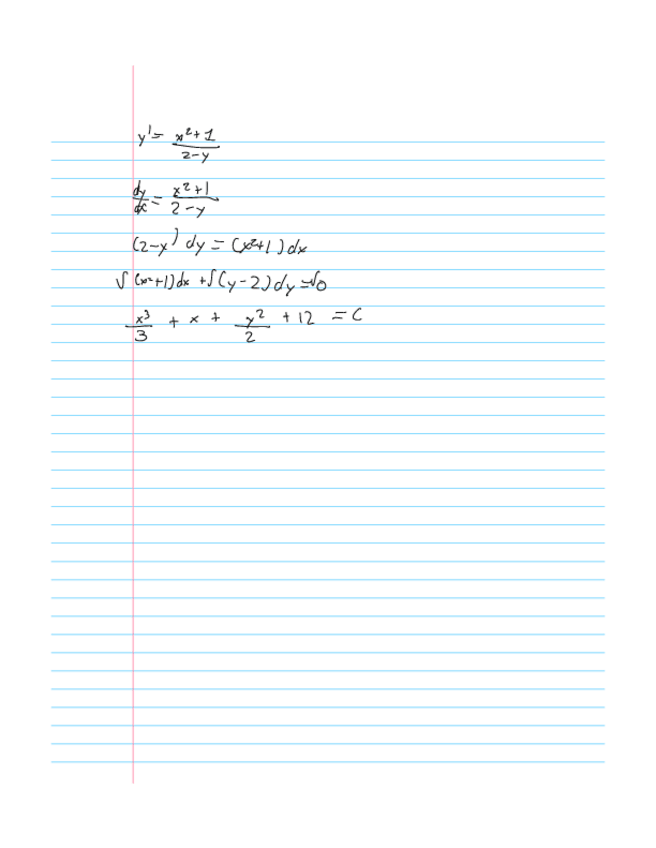 y' = \frac{x^2+1}{2-y}
\frac{dy}{dx} = \frac{x^2+1}{2-y}
(2-y) dy = (x^2+1) dx
∫(x^2+1)dx + ∫(y-2)dy = ∫0
\frac{x^3}{3} + x + \frac{y^2}{2} + 12 = C